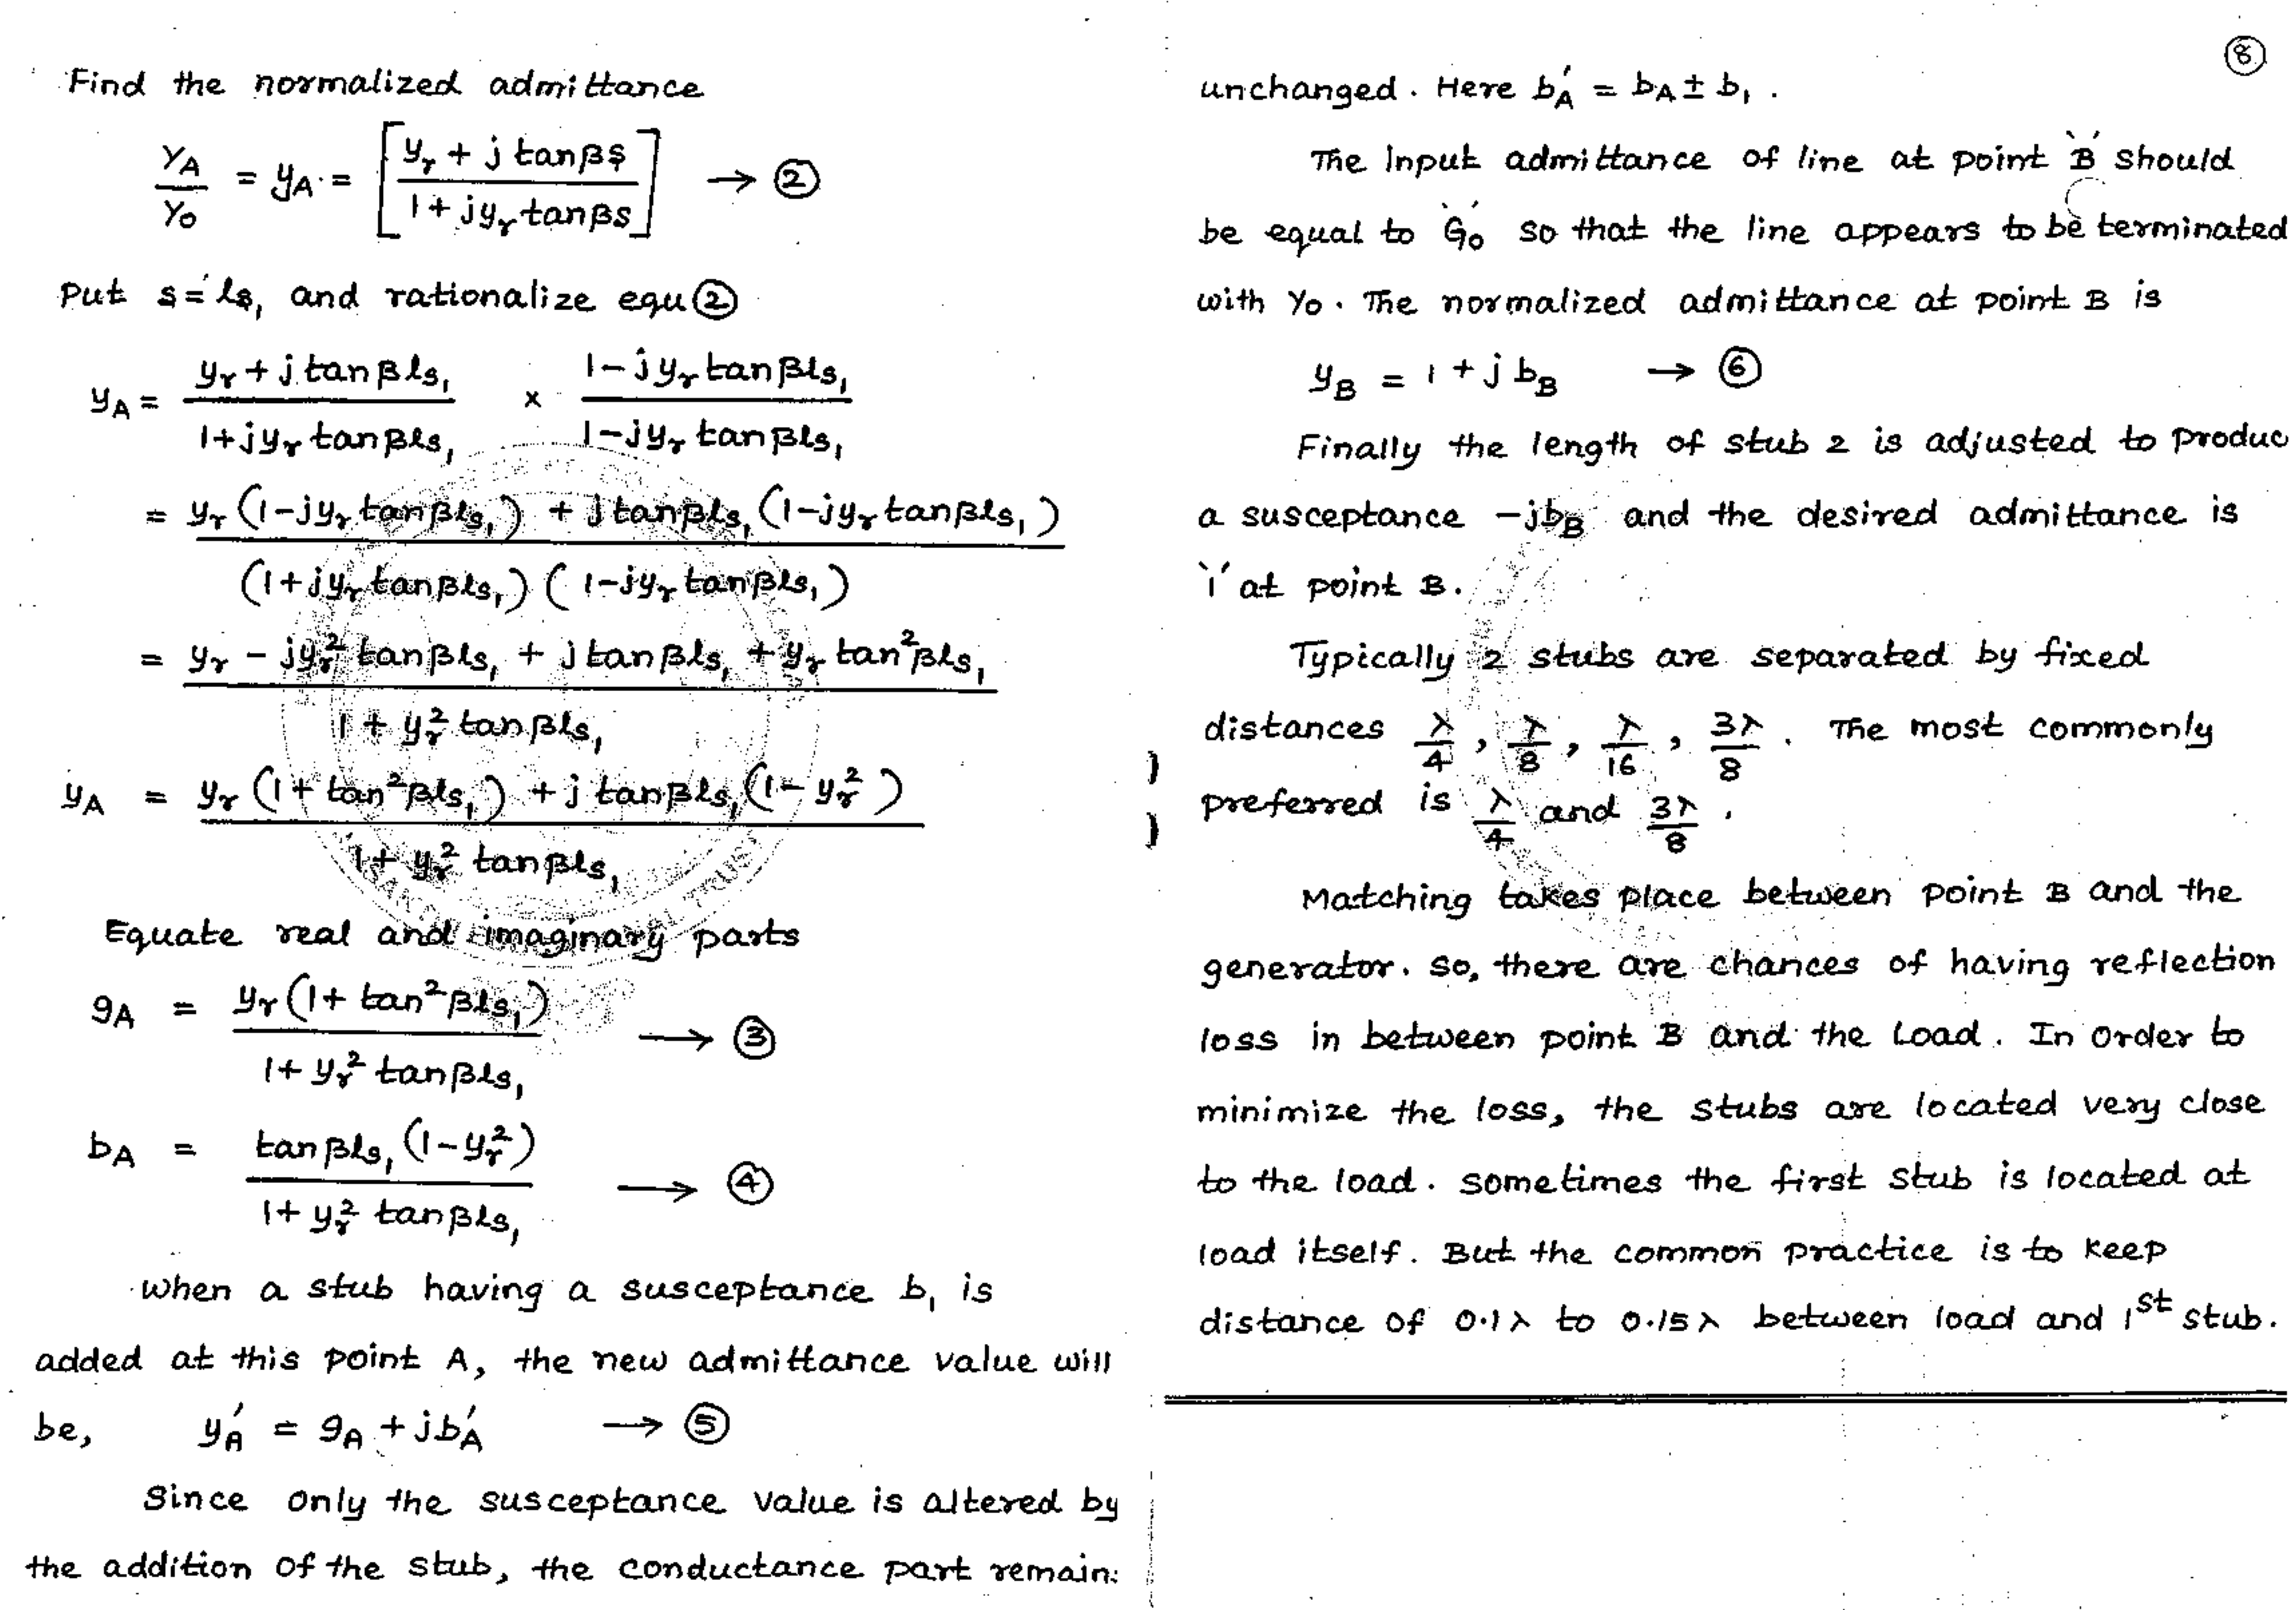 Find the normalized admittance
Y_A/Y_0 = y_A = [(y_r + j tanβs)/(1 + jy_r tanβs)] → ②
Put s = ls_1 and rationalize equ ②
y_A = (y_r + j tanβls_1)/(1+jy_r tanβls_1) × (1-jy_r tanβls_1)/(1-jy_r tanβls_1)
= (y_r (1-jy_r tanβls_1) + j tanβls_1 (1-jy_r tanβls_1))/((1+jy_r tanβls_1) (1-jy_r tanβls_1))
= (y_r - jy_r² tanβls_1 + j tanβls_1 + y_r tan²βls_1)/(1 + y_r² tanβls_1)
y_A = (y_r (1 + tan²βls_1) + j tanβls_1 (1 - y_r²))/(1 + y_r² tanβls_1)
Equate real and imaginary parts
g_A = (y_r (1 + tan²βls_1))/(1 + y_r² tanβls_1) → ③
b_A = (tanβls_1 (1-y_r²))/(1 + y_r² tanβls_1) → ④
when a stub having a susceptance b_1 is
added at this point A, the new admittance value will
be, y_A' = g_A + jb_A' → ⑤
Since only the susceptance value is altered by
the addition of the stub, the conductance part remain
⑧
unchanged. Here b_A' = b_A ± b_1.
The Input admittance of line at point `B' should
be equal to `G_0' so that the line appears to be terminated
with Y_0. The normalized admittance at point B is
y_B = 1 + j b_B → ⑥
Finally the length of stub 2 is adjusted to produc
a susceptance -jb_B and the desired admittance is
`1' at point B.
Typically 2 stubs are separated by fixed
distances λ/4, λ/8, λ/16, 3λ/8. The most commonly
preferred is λ/4 and 3λ/8.
Matching takes place between point B and the
generator. So, there are chances of having reflection
loss in between point B and the Load. In order to
minimize the loss, the stubs are located very close
to the load. Sometimes the first stub is located at
load itself. But the common practice is to keep
distance of 0.1λ to 0.15λ between load and 1st stub.